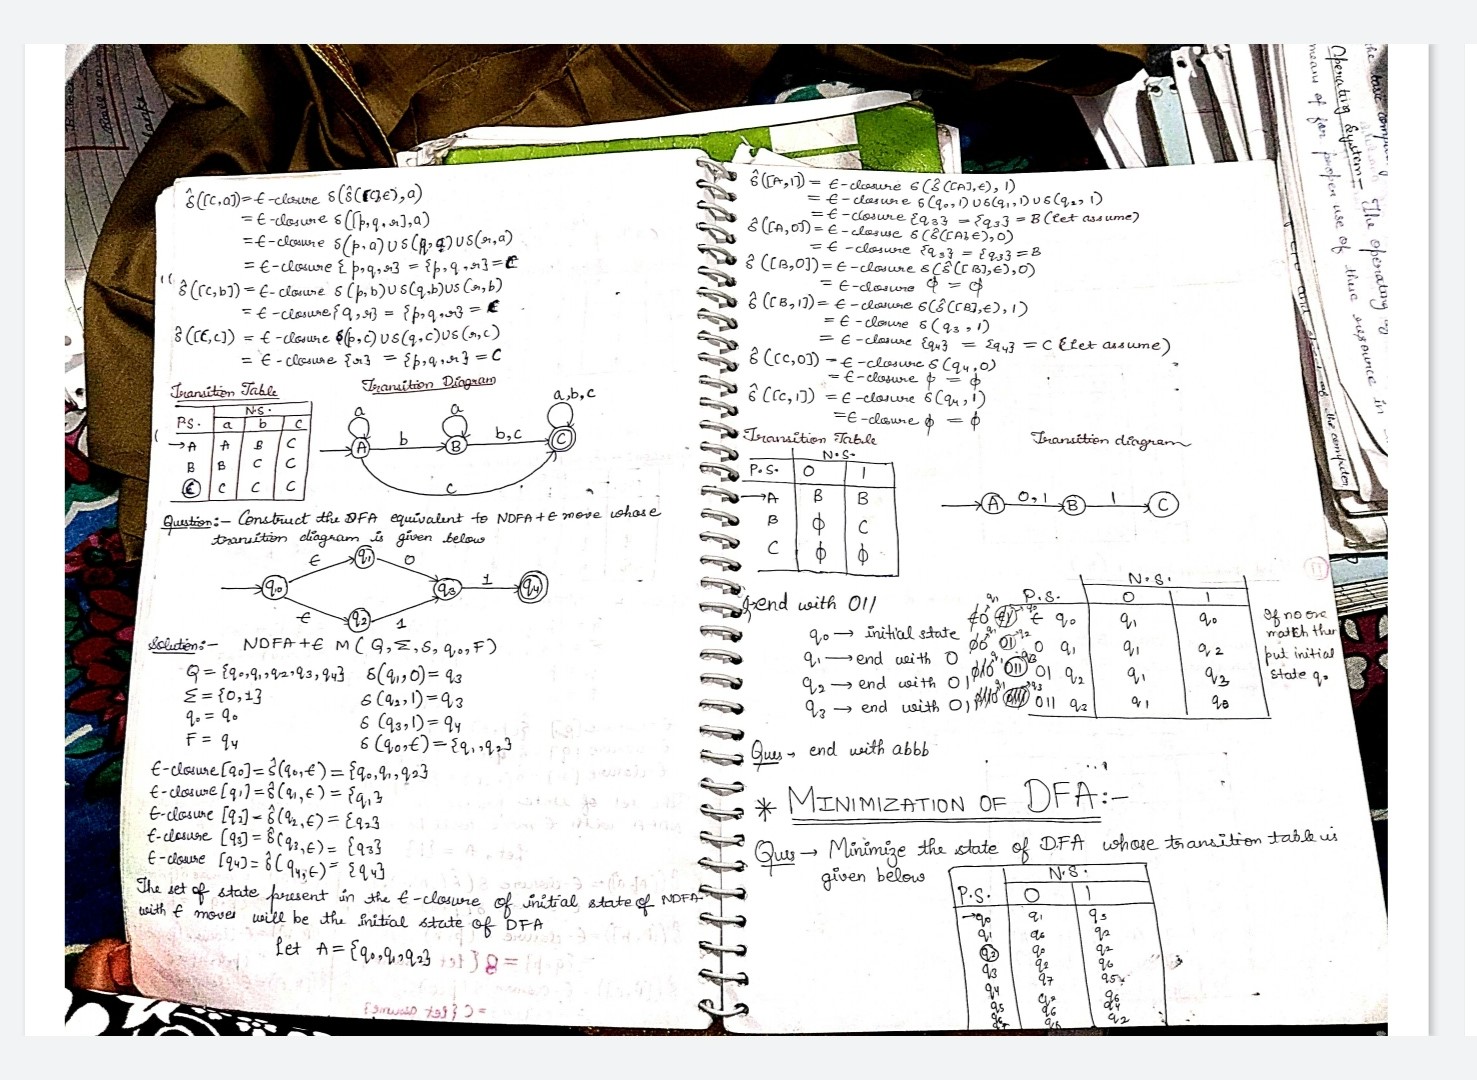 δ̂([C,a]) = ε-closure δ(δ̂([C],ε),a)
= ε-closure δ([p,q,r],a)
= ε-closure δ(p,a) ∪ δ(q,a) ∪ δ(r,a)
= ε-closure {p,q,r} = {p,q,r} = C
δ̂([C,b]) = ε-closure δ(p,b) ∪ δ(q,b) ∪ δ(r,b)
= ε-closure {q,r} = {p,q,r} = C
δ̂([C,c]) = ε-closure δ(p,c) ∪ δ(q,c) ∪ δ(r,c)
= ε-closure {r} = {p,q,r} = C
Transition Table
N.S.
P.S. a b c
→A A B C
B B C C
C C C C
Transition Diagram
a a a,b,c
A b B b,c C
c
Question:- Construct the DFA equivalent to NDFA+ε move whose
transition diagram is given below
ε q1 0
q0 q3 1 q4
ε q2 1
Solution:- NDFA+ε M(Q,Σ,δ,q0,F)
Q = {q0,q1,q2,q3,q4} δ(q1,0) = q3
Σ = {0,1} δ(q2,1) = q3
q0 = q0 δ(q3,1) = q4
F = q4 δ(q0,ε) = {q1,q2}
ε-closure[q0] = δ̂(q0,ε) = {q0,q1,q2}
ε-closure[q1] = δ̂(q1,ε) = {q1}
ε-closure[q2] = δ̂(q2,ε) = {q2}
ε-closure[q3] = δ̂(q3,ε) = {q3}
ε-closure[q4] = δ̂(q4,ε) = {q4}
The set of state present in the ε-closure of initial state of NDFA
with ε moves will be the initial state of DFA
Let A = {q0,q1,q2}
δ̂([A,1]) = ε-closure δ(δ̂([A],ε),1)
= ε-closure δ(q0,1) ∪ δ(q1,1) ∪ δ(q2,1)
= ε-closure {q3} = {q3} = B (let assume)
δ̂([A,0]) = ε-closure δ(δ̂([A],ε),0)
= ε-closure {q3} = {q3} = B
δ̂([B,0]) = ε-closure δ(δ̂([B],ε),0)
= ε-closure ϕ = ϕ
δ̂([B,1]) = ε-closure δ(δ̂([B],ε),1)
= ε-closure δ(q3,1)
= ε-closure {q4} = {q4} = C (let assume)
δ̂([C,0]) = ε-closure δ(q4,0)
= ε-closure ϕ = ϕ
δ̂([C,1]) = ε-closure δ(q4,1)
= ε-closure ϕ = ϕ
Transition Table
N.S.
P.S. 0 1
→A B B
B ϕ C
C ϕ ϕ
Transition diagram
A 0,1 B 1 C
end with 011
q0 → initial state
q1 → end with 0
q2 → end with 01
q3 → end with 011
N.S.
P.S. 0 1
ε q0 q1 q0
0 q1 q1 q2
01 q2 q1 q3
011 q3 q1 q0
If no one
match then
put initial
state q0
Ques → end with abbb
* MINIMIZATION OF DFA:-
Ques → Minimize the state of DFA whose transition table is
given below
N.S.
P.S. 0 1
→q0 q1 q5
q1 q6 q2
q2 q0 q2
q3 q2 q6
q4 q7 q5
q5 q2 q6
q6 q6 q4
The operating
Operating System-
means of for proper use of these resource in
the computer